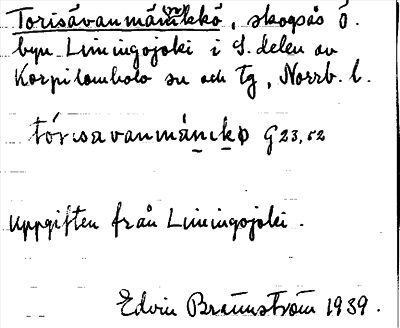 Torisåvanmännikkö, skogsås ö.
byn Liiningojoki i S. delen av
Korpilombolo sn och tg, Norrb. l.
tórisavanmánikö G 23, 52
Uppgiften från Liiningojoki.
Edvin Brännström 1939.